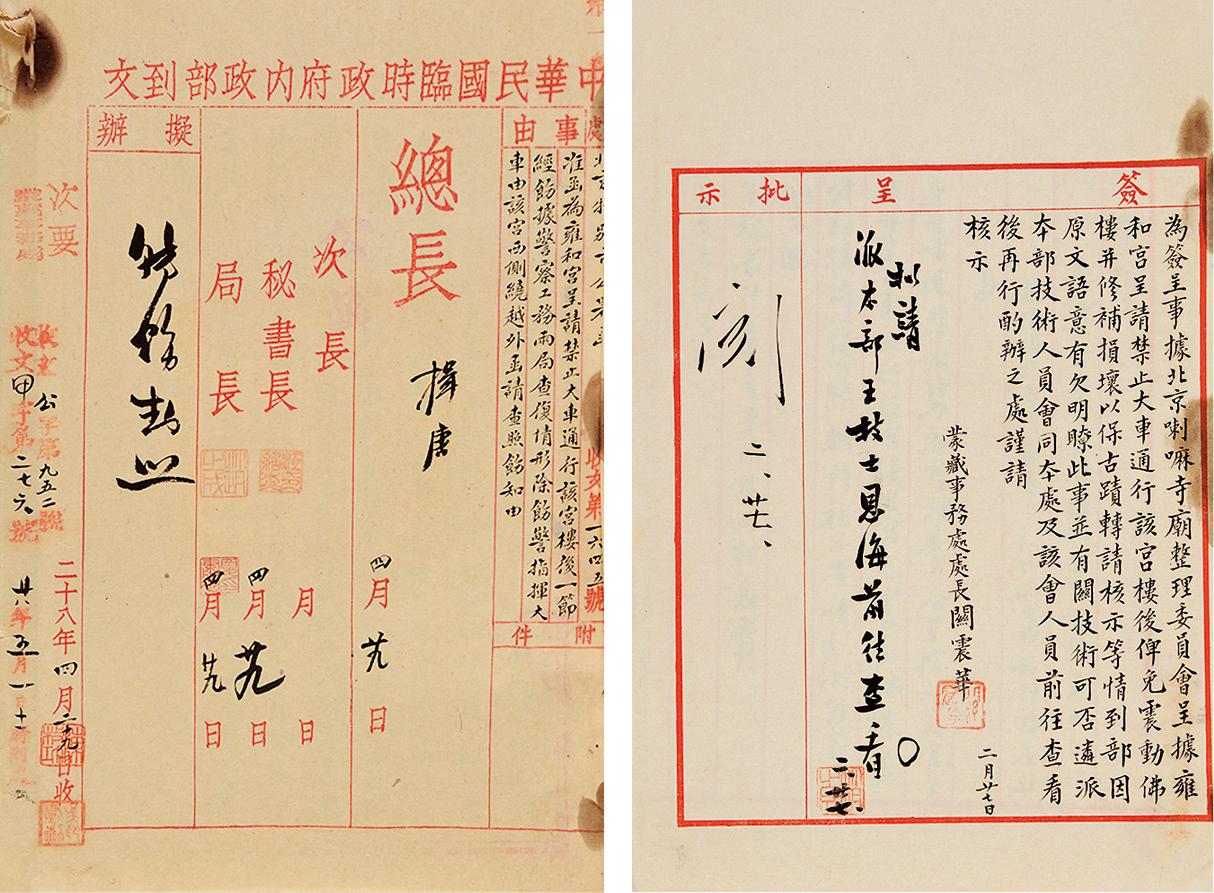 中華民國臨時政府內政部到文
處
事由
准函為雍和宮呈請禁止大車通行該宮樓後一節
經飭據警察工務兩局查復情形除飭警指揮大
車由該宮西側繞越外函請查照飭知由
收文第一六四五號
附件
總長
揖唐
四月廿九日
次長
月 日
秘書長
四月廿九日
局長
四月廿九日
擬辦
轉飭知照
二十八年四月二十九日收
次要
公字第九五二號
收文甲字第二七六號
廿八年五月一日十
簽呈
為簽呈事據北京喇嘛寺廟整理委員會呈據雍
和宮呈請禁止大車通行該宮樓後俾免震動佛
樓并修補損壞以保古蹟轉請核示等情到部因
原文語意有欠明瞭此事並有關技術可否遴派
本部技術人員會同本處及該會人員前往查看
後再行酌辦之處謹請
核示
蒙藏事務處處長關震華
二月廿七日
擬請
派本部王技士恩海前往查看
二、廿七、
批示
閱
二、廿七、